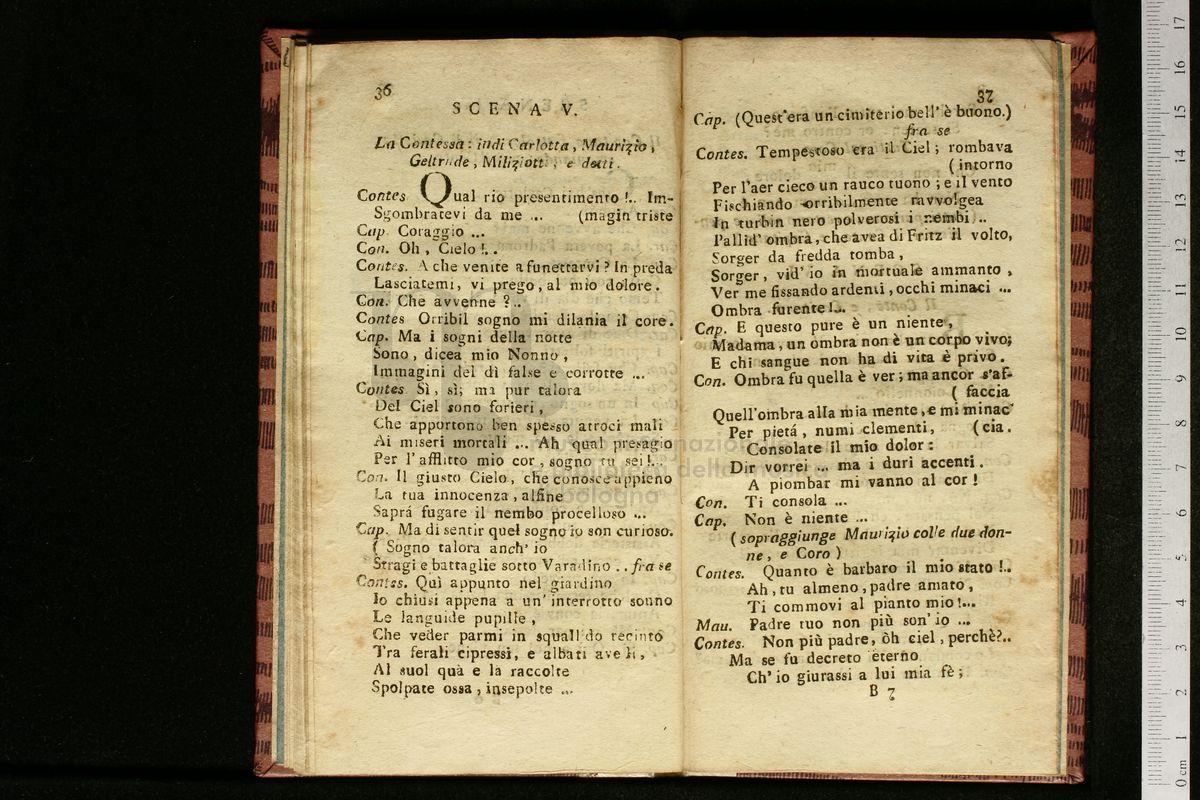 36
SCENA V.
La Contessa: indi Carlotta, Maurizio,
Geltrude, Miliziotti, e detti.
Contes Qual rio presentimento!.. Im-
Sgombratevi da me ... (magin triste
Cap. Coraggio ...
Con. Oh, Cielo!..
Contes. A che venite a funettarvi? In preda
Lasciatemi, vi prego, al mio dolore.
Con. Che avvenne?..
Contes Orribil sogno mi dilania il core.
Cap. Ma i sogni della notte
Sono, dicea mio Nonno,
Immagini del dì false e corrotte ...
Contes Sì, sì; ma pur talora
Del Ciel sono forieri,
Che apportono ben spesso atroci mali
Ai miseri mortali ... Ah qual presagio
Per l'afflitto mio cor, sogno tu sei!...
Con. Il giusto Cielo, che conosce appieno
La tua innocenza, alfine
Saprá fugare il nembo procelloso ...
Cap. Ma di sentir quel sogno io son curioso.
( Sogno talora anch' io
Stragi e battaglie sotto Varadino .. fra se
Contes. Quì appunto nel giardino
Io chiusi appena a un' interrotto sonno
Le languide pupille,
Che veder parmi in squallido recinto
Tra ferali cipressi, e albati avelli,
Al suol quà e là raccolte
Spolpate ossa, insepolte ...
37
Cap. (Quest'era un cimiterio bell' è buono.)
fra se
Contes. Tempestoso era il Ciel; rombava
( intorno
Per l'aer cieco un rauco tuono; e il vento
Fischiando orribilmente ravvolgea
In turbin nero polverosi i nembi ..
Pallid' ombra, che avea di Fritz il volto,
Sorger da fredda tomba,
Sorger, vid' io in mortuale ammanto,
Ver me fissando ardenti, occhi minaci ...
Ombra furente!..
Cap. E questo pure è un niente,
Madama, un ombra non è un corpo vivo;
E chi sangue non ha di vita è privo.
Con. Ombra fu quella è ver; ma ancor s'af-
( faccia
Quell'ombra alla mia mente, e mi minac
Per pietá, numi clementi, (cia.
Consolate il mio dolor:
Dir vorrei ... ma i duri accenti.
A piombar mi vanno al cor!
Con. Ti consola ...
Cap. Non è niente ...
( sopraggiunge Maurizio colle due don-
ne, e Coro )
Contes. Quanto è barbaro il mio stato!..
Ah, tu almeno, padre amato,
Ti commovi al pianto mio!...
Mau. Padre tuo non più son' io ...
Contes. Non più padre, òh ciel, perchè?..
Ma se fu decreto eterno
Ch' io giurassi a lui mia fè;
B 7